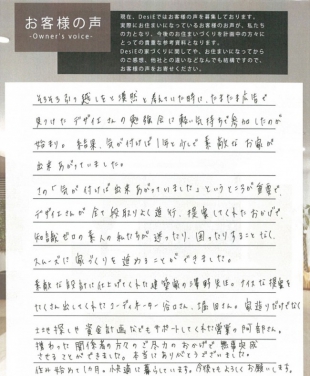 お客様の声
-Owner's voice-
現在、DesiEではお客様の声を募集しております。
実際にお住まいになっているお客様の声が、私たち
の力となり、今後のお住まいづくりを計画中の方々に
とっての貴重な参考資料となります。
DesiEの家づくりに関してや、お住まいになってから
のご感想、他社との違いなどなんでも結構ですので、
お客様の声をお寄せください。
そろそろ引っ越しをと漠然と考えていた時に、たまたま広告で
見つけたデザイエさんの勉強会に軽い気持ちで参加したのが
始まり。結果、気が付けば1年ちょっとで素敵なお家が
出来あがっていました。
この「気が付けば出来あがっていました」というところが重要で、
デザイエさんが全て段取りよく進行、提案してくれたおかげで、
知識ゼロの素人の私たちが迷ったり、困ったりすることなく、
スムーズに家づくりを進めることができました。
素敵な設計に仕上げてくれた建築家の澤野先生。ナイスな提案を
たくさん出してくれたコーディネーター さん、 さん。家造りだけでなく
土地探しや資金計画などもサポートしてくれた営業の阿部さん。
携わった関係者の方々のご尽力のおかげで無事完成
させることができました。本当にありがとうございました。
住み始めて1カ月。快適に暮らしています。今後もよろしくお願いします。